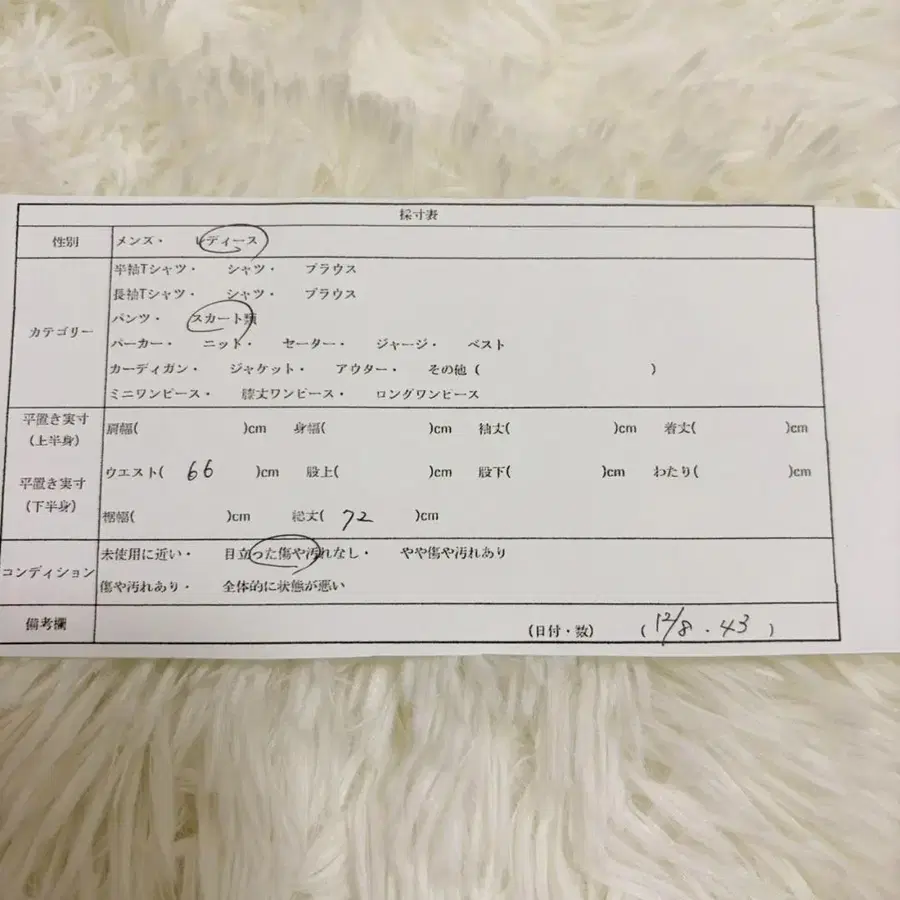 採寸表
性別 メンズ・ レディース
カテゴリー 半袖Tシャツ・ シャツ・ ブラウス
長袖Tシャツ・ シャツ・ ブラウス
パンツ・ スカート類
パーカー・ ニット・ セーター・ ジャージ・ ベスト
カーディガン・ ジャケット・ アウター・ その他( )
ミニワンピース・ 膝丈ワンピース・ ロングワンピース
平置き実寸
(上半身) 肩幅( )cm 身幅( )cm 袖丈( )cm 着丈( )cm
平置き実寸
(下半身) ウエスト( 66 )cm 股上( )cm 股下( )cm わたり( )cm
裾幅( )cm 総丈( 72 )cm
コンディション 未使用に近い・ 目立った傷や汚れなし・ やや傷や汚れあり
傷や汚れあり・ 全体的に状態が悪い
備考欄 (日付・数) ( 12/8 . 43 )